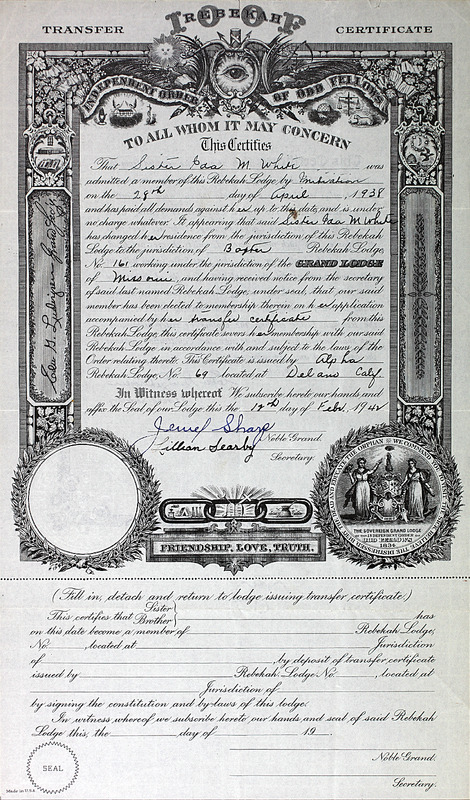 IOOF
REBEKAH
TRANSFER CERTIFICATE
INDEPENDENT ORDER OF ODD FELLOWS
TO ALL WHOM IT MAY CONCERN
This Certifies
That Sister M White was
admitted a member of this Rebekah Lodge by Initiation
on the 28th day of April, 1938
and has paid all demands against her up to this date, and is under
no charge whatever. It appearing that said Sister M White
has changed her residence from the jurisdiction of this Rebekah
Lodge to the jurisdiction of Baxter Rebekah Lodge,
No. 161 working under the jurisdiction of the GRAND LODGE
of Missouri, and having received notice from the secretary
of said last named Rebekah Lodge, under seal, that our said
member has been elected to membership therein on her application
accompanied by her transfer certificate from this
Rebekah Lodge, this certificate severs her membership with our said
Rebekah Lodge in accordance with and subject to the laws of the
Order relating thereto. This Certificate is issued by Alpha
Rebekah Lodge, No. 69 located at Delano Calif
In Witness whereof We subscribe hereto our hands and
affix the Seal of our Lodge this the 12th day of Febr. 1942
Jewel Sharp
Noble Grand.
Lillian Searby
Secretary.
THE SOVEREIGN GRAND LODGE
OF THE INDEPENDENT ORDER OF
ODD FELLOWS
FRIENDSHIP, LOVE, TRUTH.
(Fill in, detach and return to lodge issuing transfer certificate.)
This certifies that Sister
Brother has
on this date become a member of Rebekah Lodge,
No. , located at Jurisdiction
of , by deposit of transfer certificate
issued by Rebekah Lodge No. , located at
Jurisdiction of
by signing the constitution and by-laws of this lodge.
In witness whereof we subscribe hereto our hands and seal of said Rebekah
Lodge this, the day of 19 .
Noble Grand.
SEAL
Secretary.
Made in U.S.A.